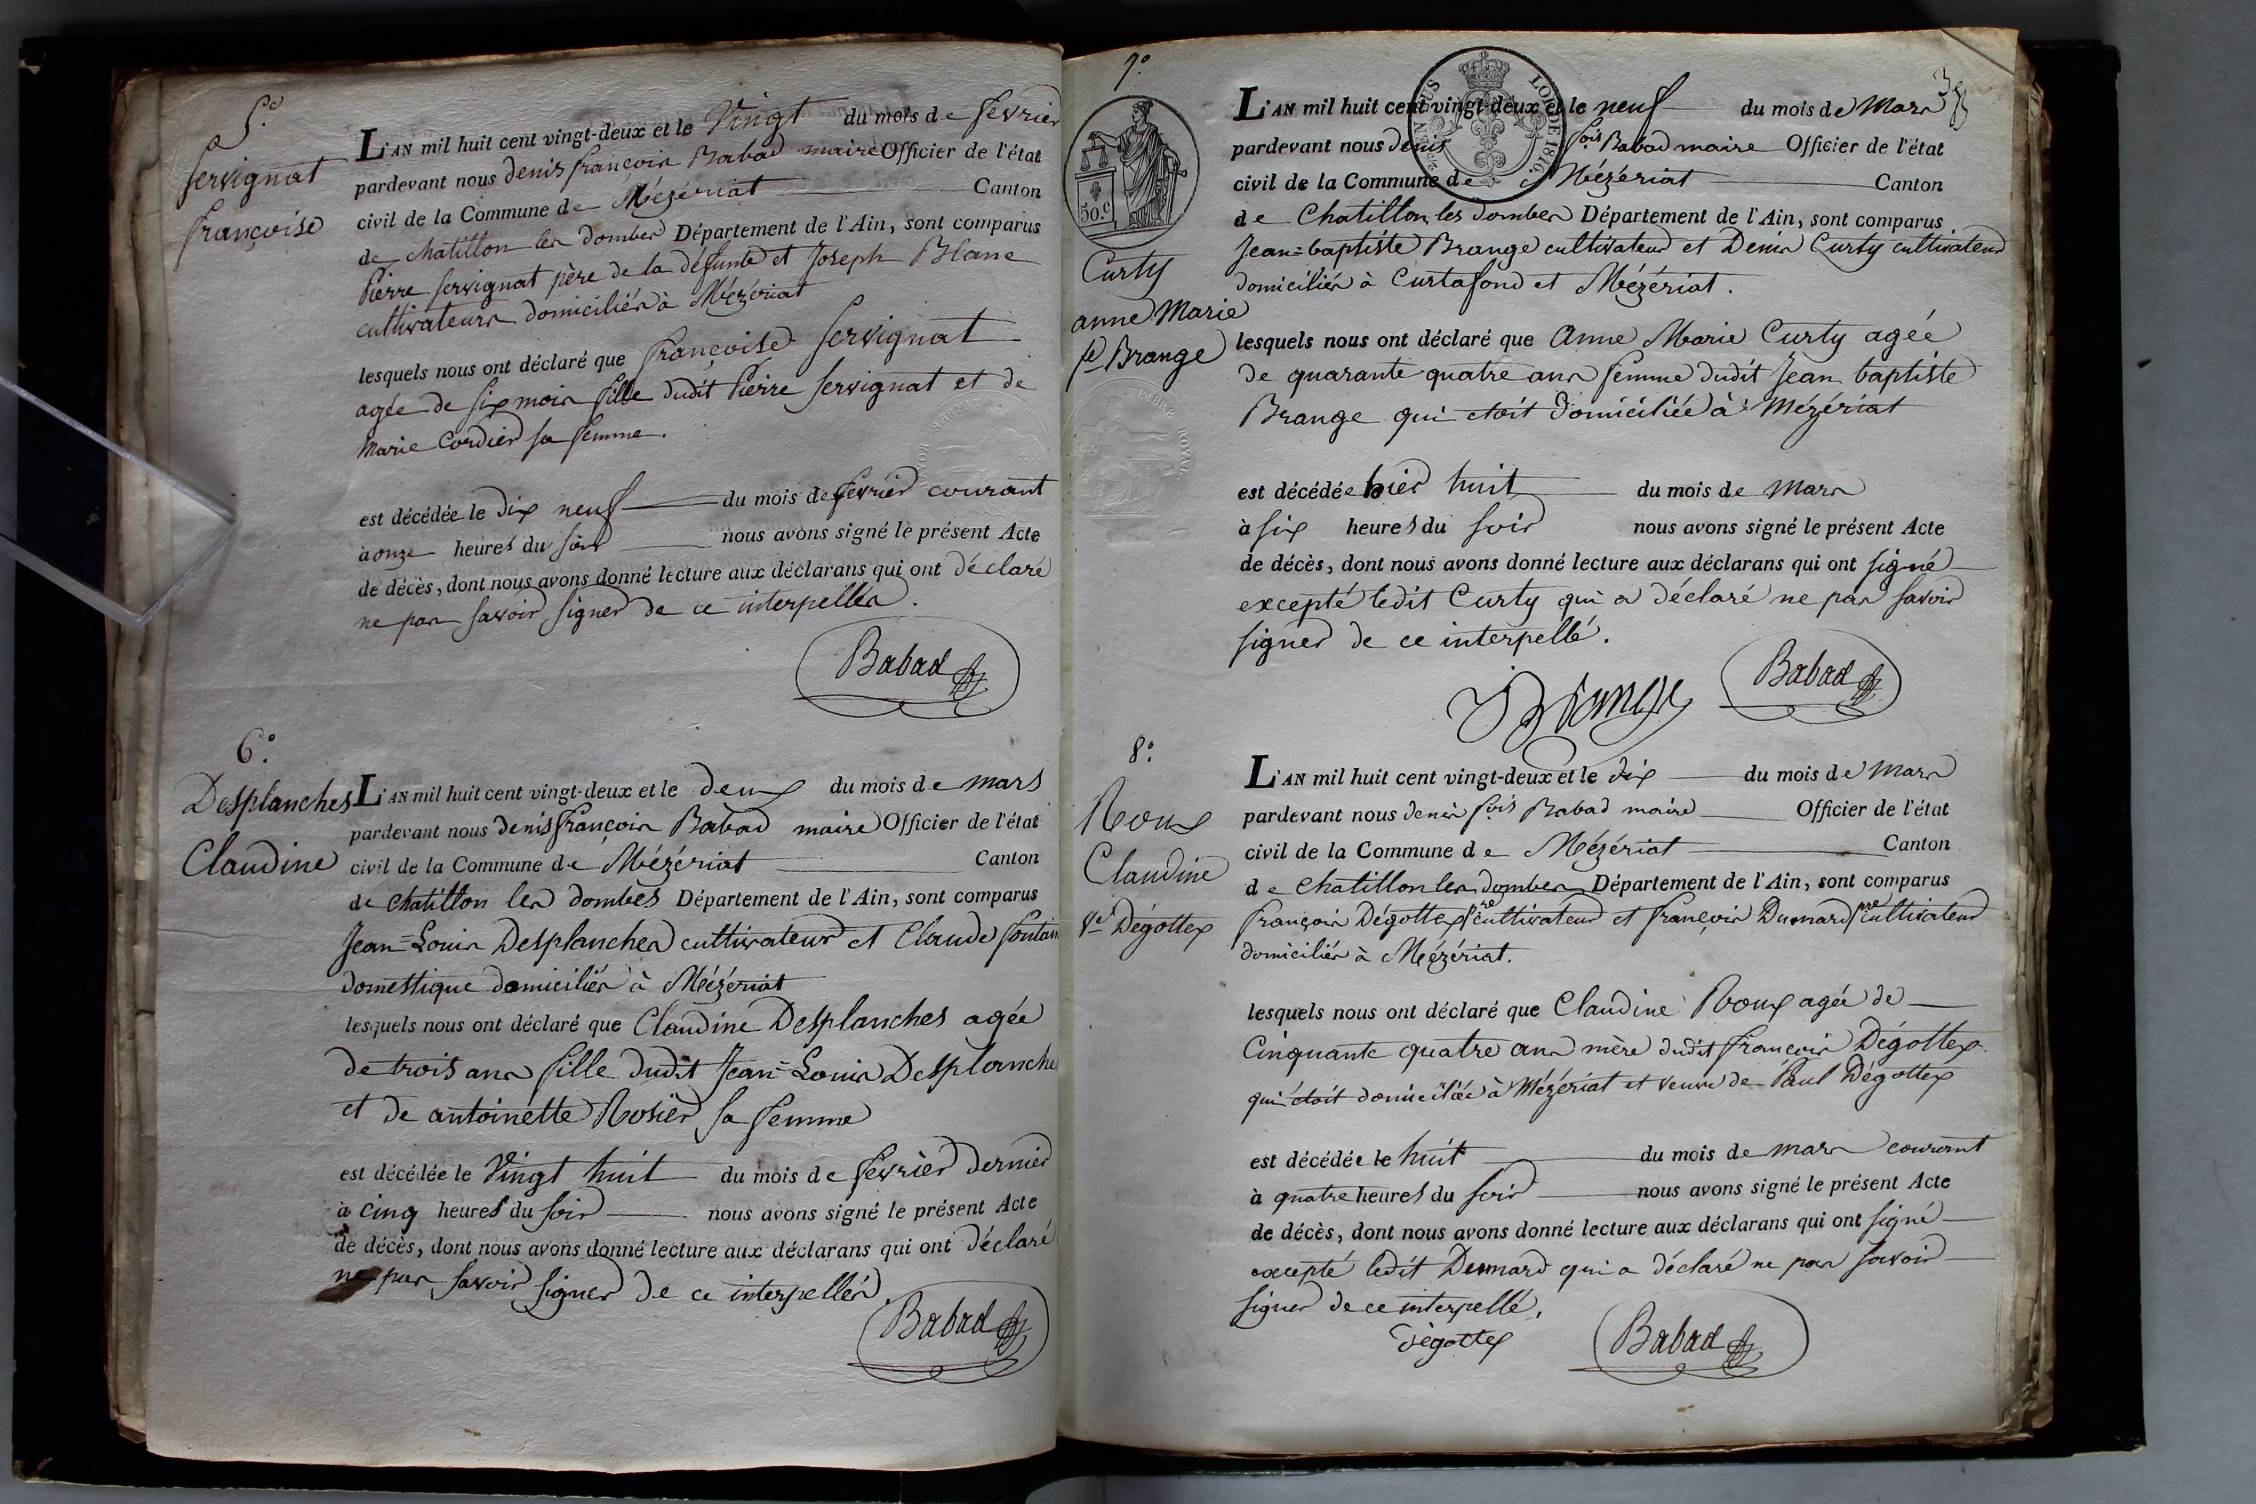 5.e
Servignat
françoise
L'AN mil huit cent vingt-deux et le Vingt du mois de février
pardevant nous denis françois Babad maire Officier de l'état
civil de la Commune de Mézériat Canton
de chatillon les dombes Département de l'Ain, sont comparus
Pierre Servignat père de la défunte et Joseph Blanc
cultivateurs domiciliés à Mézériat
lesquels nous ont déclaré que françoise Servignat
agée de six mois fille dudit Pierre Servignat et de
Marie Cordier sa femme.
est décédée le dix neuf du mois de février courant
à onze heures du soir nous avons signé le présent Acte
de décès, dont nous avons donné lecture aux déclarans qui ont déclaré
ne pas savoir signer de ce interpellés.
Babad
6.°
Desplanches
Claudine
L'AN mil huit cent vingt-deux et le deux du mois de mars
pardevant nous denis françois Babad maire Officier de l'état
civil de la Commune de Mézériat Canton
de chatillon les dombes Département de l'Ain, sont comparus
Jean=Louis Desplanches cultivateur et Claude fontain
domestique domiciliés à Mézériat
lesquels nous ont déclaré que Claudine Desplanches agée
de trois ans fille dudit Jean=Louis Desplanche
et de antoinette Rosier sa femme
est décédée le Vingt huit du mois de février dernier
à cinq heures du soir nous avons signé le présent Acte
de décès, dont nous avons donné lecture aux déclarans qui ont déclaré
ne pas savoir signer de ce interpellés.
Babad
7.°
50.c
LOI DE 1816.
Curty
anne Marie
fe Brange
TIMBRE ROYAL
L'AN mil huit cent vingt-deux et le neuf du mois de Mars
pardevant nous denis fois Babad maire Officier de l'état
civil de la Commune de Mézériat Canton
de Chatillon les dombes Département de l'Ain, sont comparus
Jean=baptiste Brange cultivateur et Denis Curty cultivateur
domiciliés à Curtafond et Mézériat.
lesquels nous ont déclaré que Anne Marie Curty agée
de quarante quatre ans femme dudit Jean baptiste
Brange qui etoit domiciliée à Mézériat
est décédée hier huit du mois de Mars
à six heures du soir nous avons signé le présent Acte
de décès, dont nous avons donné lecture aux déclarans qui ont signé
excepté ledit Curty qui a déclaré ne pas savoir
signer de ce interpellé.
Brange
Babad
8.°
Roux
Claudine
Ve Dégottex
L'AN mil huit cent vingt-deux et le dix du mois de Mars
pardevant nous denis fois Babad maire Officier de l'état
civil de la Commune de Mézériat Canton
de Chatillon les dombes Département de l'Ain, sont comparus
françois Dégottex pre cultivateur et françois Dumard pre cultivateur
domiciliés à Mézériat.
lesquels nous ont déclaré que Claudine Roux agée de
Cinquante quatre ans mère dudit françois Dégottex
qui étoit domiciliée à Mézériat et veuve de Paul Dégottex
est décédée le huit du mois de mars courant
à quatre heures du soir nous avons signé le présent Acte
de décès, dont nous avons donné lecture aux déclarans qui ont signé
excepté ledit Dumard qui a déclaré ne pas savoir
signer de ce interpellé.
Dégottex
Babad